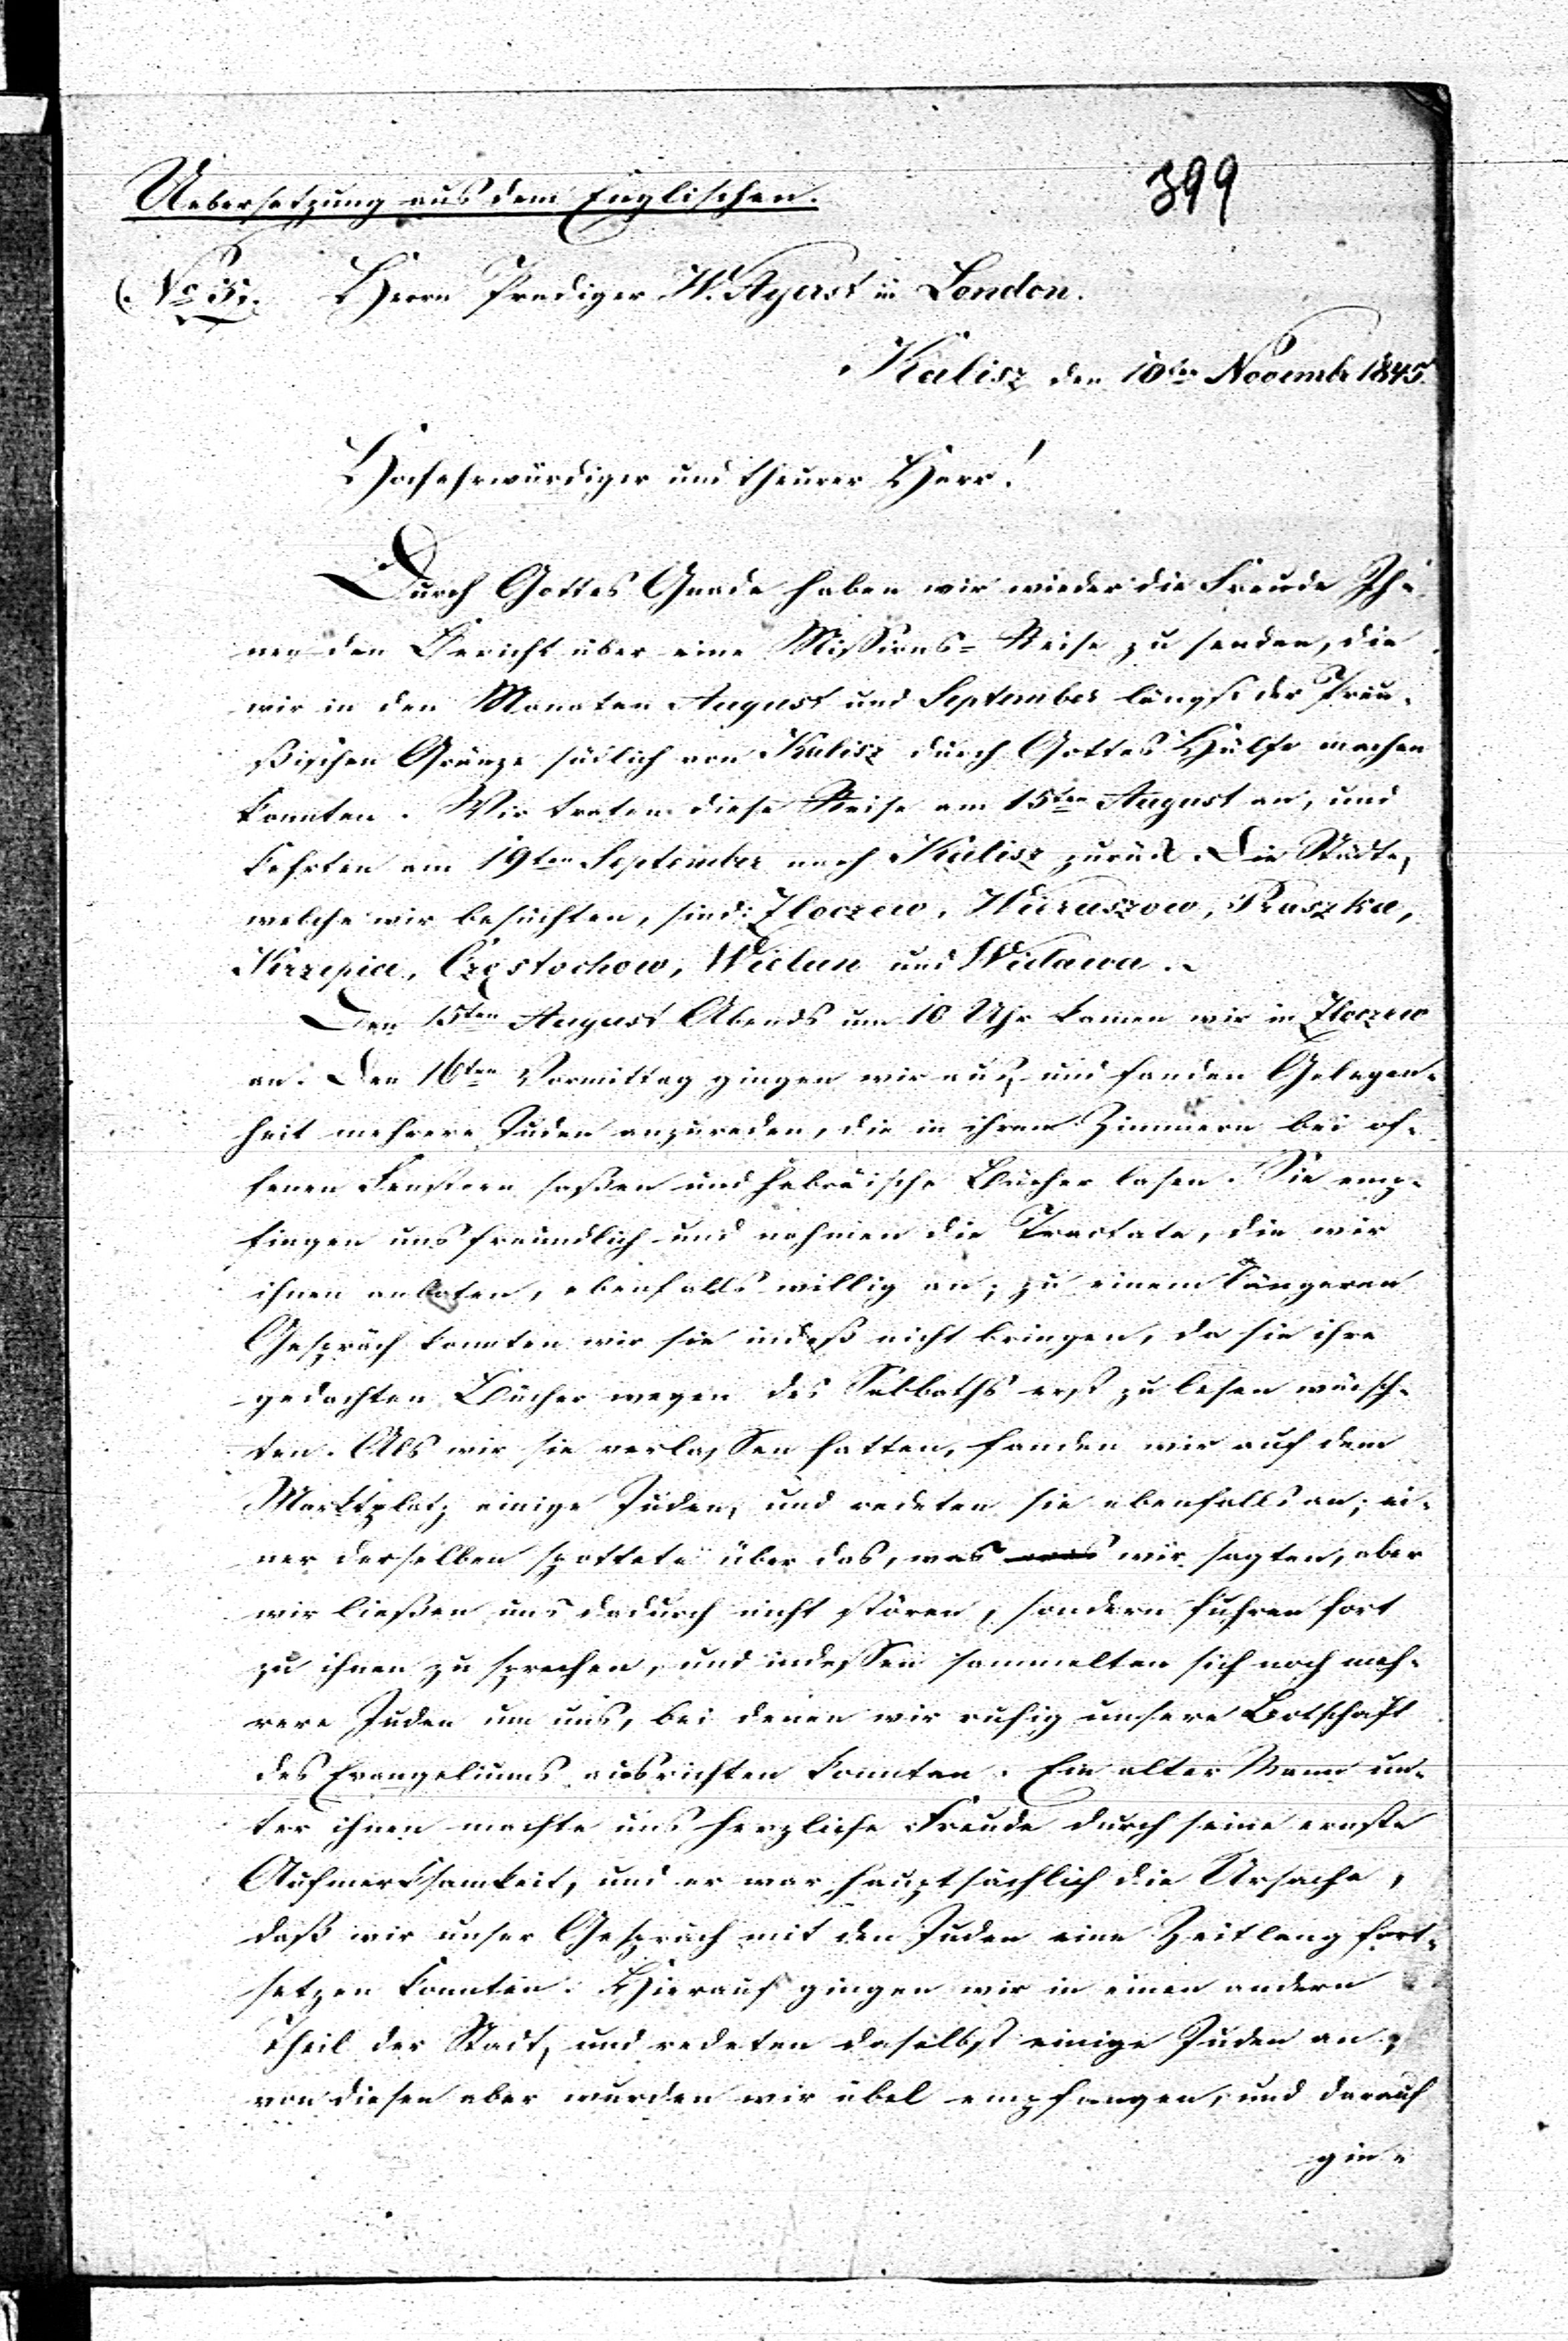 Uebersetzung aus dem Englischen.
399
Herrn Prediger W. Ayerst in London.
Kalisz den 10ten Novembr 1845.
Hochehrwürdiger und theurer Herr!
Durch Gottes Gnade haben wir wieder die Freude Ih-
nen den Bericht über eine Missions-Reise zu senden, die
wir in den Monaten August und September längst der Preu-
ßischen Gränze südlich von Kalisz durch Gottes Hülfe machen
konnten. Wir traten diese Reise am 15ten August an, und
kehrten am 19ten September nach Kalisz zurück. Die Städte,
welche wir besuchten, sind: Zloczew, Wieruszow, Praszka,
Krzepice, Częstochow, Wielun und Widawa.
Den 15ten August Abends um 10 Uhr kamen wir in Zloczew
an. Den 16ten Vormittag gingen wir aus, und fanden Gelegen-
heit mehrere Juden anzureden, die in ihren Zimmern bei of-
fenen Fenstern saßen und hebräische Bücher lasen. Sie emp-
fingen uns freundlich und nahmen die Tractate, die wir
ihnen anboten, ebenfalls willig an; zu einem längeren
Gespräch konnten wir sie indeß nicht bringen, da sie ihre
gedachten Bücher wegen des Sabbaths erst zu lesen wünsch-
ten. Als wir sie verlassen hatten, fanden wir auf dem
Marktplatz einige Juden, und redeten sie ebenfalls an; ei-
ner derselben spottete über das, was wir sagten, aber
wir ließen uns dadurch nicht stören, sondern fuhren fort
zu ihnen zu sprechen, und indessen sammelten sich noch meh-
rere Juden um uns, bei denen wir ruhig unsere Botschaft
des Evangeliums ausrichten konnten. Ein alter Mann un-
ter ihnen machte uns herzliche Freude durch seine ernste
Aufmerksamkeit, und er war hauptsächlich die Ursache,
daß wir unser Gespräch mit den Juden eine Zeitlang fort-
setzen konnten. Hierauf gingen wir in einen andern
Theil der Stadt, und redeten daselbst einige Juden an;
von diesen aber wurden wir übel empfangen, und darauf
gin-